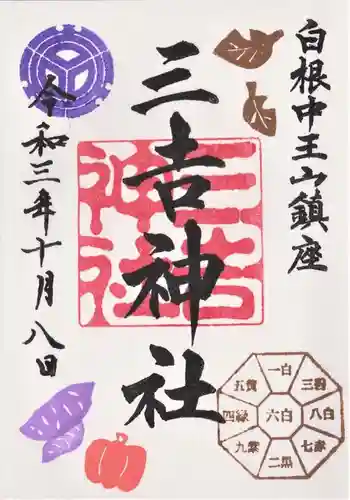 白根中王山鎮座
三吉神社
令和三年十月八日
三吉
神社
一白
三碧
八白
七赤
二黒
九紫
四緑
五黄
六白